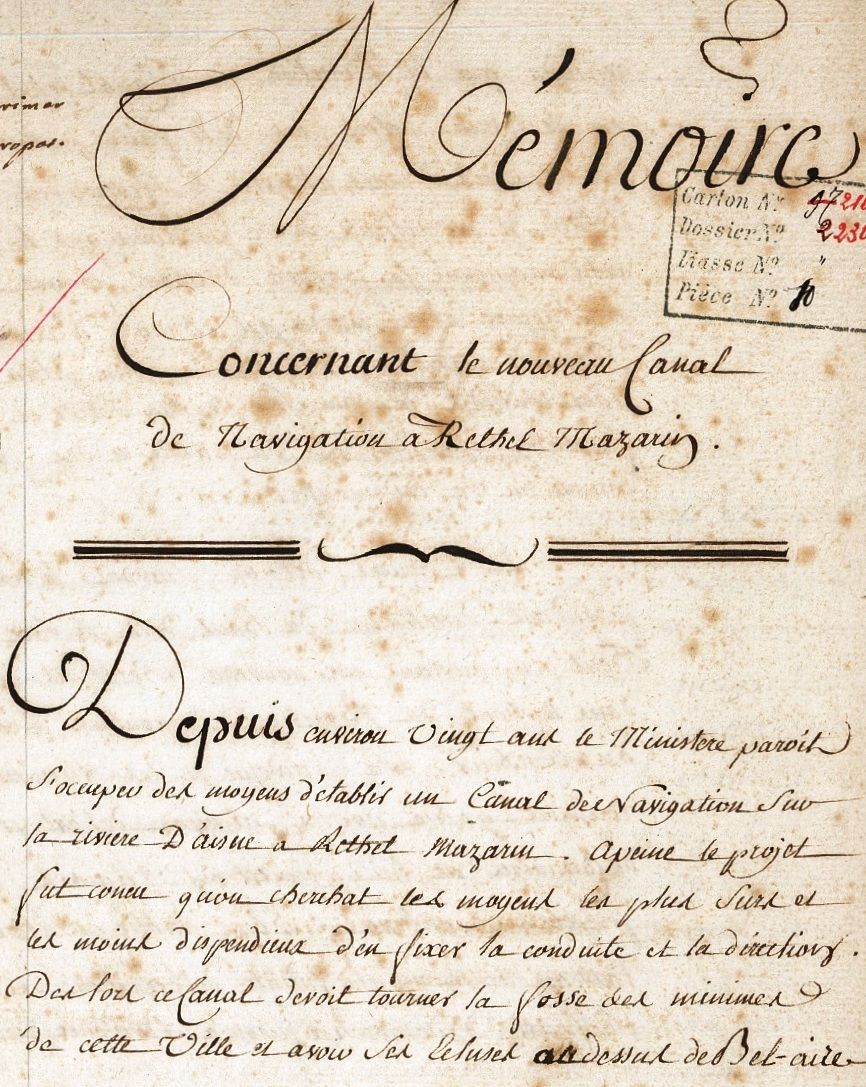 rimer
ropos.
Mémoire
Carton Nº 97 210
Dossier Nº 2 230
Liasse Nº "
Pièce Nº 10
Concernant le nouveau Canal
de Navigation a Rethel Mazarin.
Depuis environ Vingt ans le Ministere paroît
s'occuper des moyens d'établir un Canal de Navigation sur
la riviere D'aisne a Rethel Mazarin. Apeine le projet
fut concu qu'on cherchat les moyens les plus surs et
les moins dispendieux d'en fixer la conduite et la direction.
Des lors ce Canal devoit tourner la fosse des minimes
de cette Ville et avoir ses Ecluses au dessus de Bel-aire